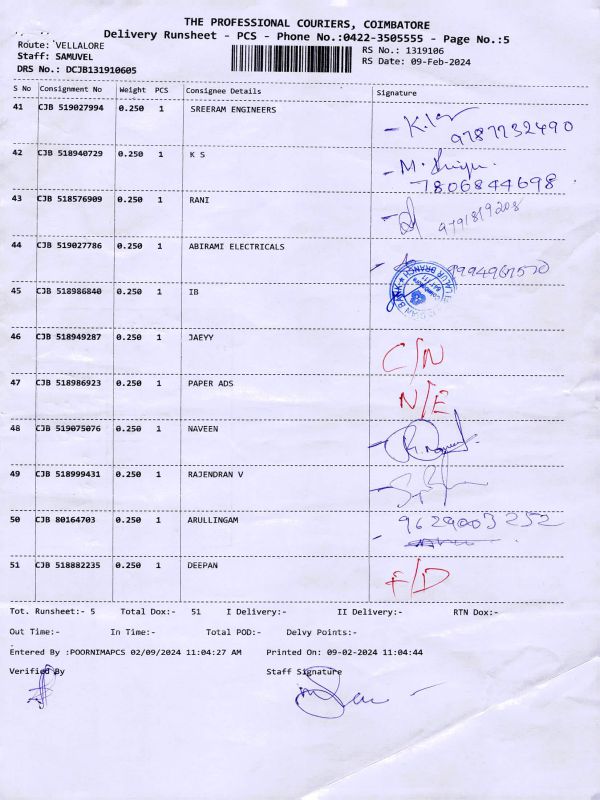 THE PROFESSIONAL COURIERS, COIMBATORE
Delivery Runsheet - PCS - Phone No.:0422-3505555 - Page No.:5
Route: VELLALORE RS No.: 1319106
Staff: SAMUVEL RS Date: 09-Feb-2024
DRS No.: DCJB131910605
S No Consignment No Weight PCS Consignee Details Signature
41 CJB 519027994 0.250 1 SREERAM ENGINEERS
9787732490
42 CJB 518940729 0.250 1 K S
7806844698
43 CJB 518576909 0.250 1 RANI
9791819208
44 CJB 519027786 0.250 1 ABIRAMI ELECTRICALS
45 CJB 518986840 0.250 1 IB
46 CJB 518949287 0.250 1 JAEYY
C/N
47 CJB 518986923 0.250 1 PAPER ADS
N/E
48 CJB 519075076 0.250 1 NAVEEN
49 CJB 518999431 0.250 1 RAJENDRAN V
50 CJB 80164703 0.250 1 ARULLINGAM 9629003252
51 CJB 518882235 0.250 1 DEEPAN
F/D
Tot. Runsheet:- 5 Total Dox:- 51 I Delivery:- II Delivery:- RTN Dox:-
Out Time:- In Time:- Total POD:- Delvy Points:-
Entered By :POORNIMAPCS 02/09/2024 11:04:27 AM Printed On: 09-02-2024 11:04:44
Verified By Staff Signature